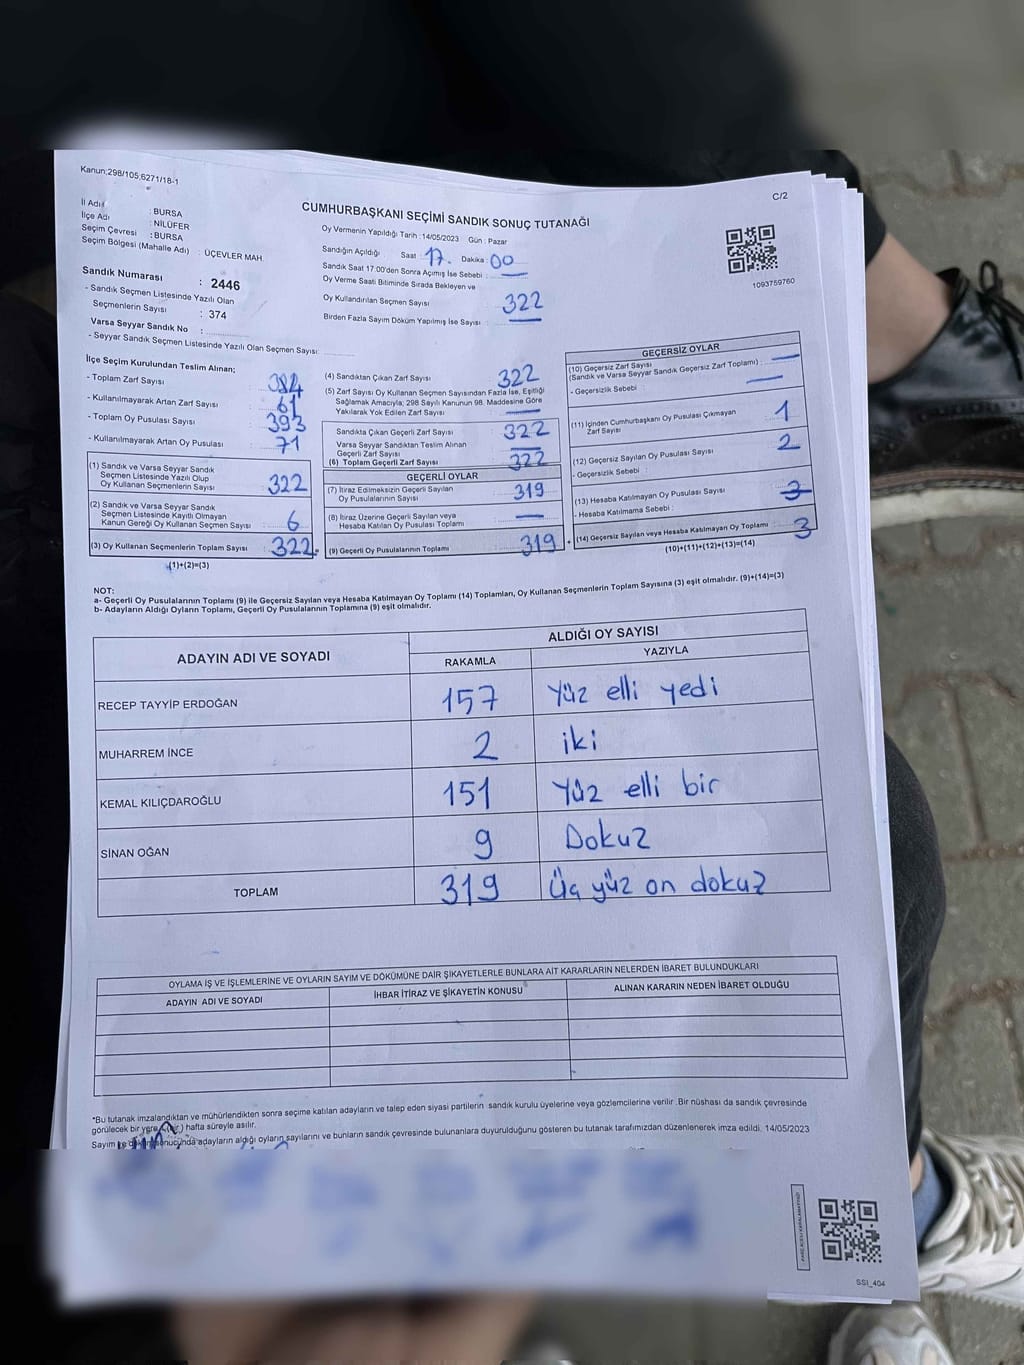 Kanun;298/105,6271/18-1
C/2
CUMHURBAŞKANI SEÇİMİ SANDIK SONUÇ TUTANAĞI
İl Adı : BURSA
İlçe Adı : NİLÜFER
Seçim Çevresi : BURSA
Seçim Bölgesi (Mahalle Adı) : ÜÇEVLER MAH.
Sandık Numarası : 2446
- Sandık Seçmen Listesinde Yazılı Olan
Seçmenlerin Sayısı : 374
Varsa Seyyar Sandık No :
- Seyyar Sandık Seçmen Listesinde Yazılı Olan Seçmen Sayısı:
Oy Vermenin Yapıldığı Tarih : 14/05/2023 Gün : Pazar
Sandığın Açıldığı Saat : 17. Dakika : 00
Sandık Saat 17:00'den Sonra Açımış İse Sebebi :
Oy Verme Saati Bitiminde Sırada Bekleyen ve
Oy Kullandırılan Seçmen Sayısı 322
Birden Fazla Sayım Döküm Yapılmış İse Sayısı :
1093759760
İlçe Seçim Kurulundan Teslim Alınan;
- Toplam Zarf Sayısı : 384
- Kullanılmayarak Artan Zarf Sayısı : 61
- Toplam Oy Pusulası Sayısı : 393
- Kullanılmayarak Artan Oy Pusulası : 71
(1) Sandık ve Varsa Seyyar Sandık
Seçmen Listesinde Yazılı Olup
Oy Kullanan Seçmenlerin Sayısı : 322
(2) Sandık ve Varsa Seyyar Sandık
Seçmen Listesinde Kayıtlı Olmayan
Kanun Gereği Oy Kullanan Seçmen Sayısı : 6
(3) Oy Kullanan Seçmenlerin Toplam Sayısı : 322
(1)+(2)=(3)
(4) Sandıktan Çıkan Zarf Sayısı : 322
(5) Zarf Sayısı Oy Kullanan Seçmen Sayısından Fazla İse, Eşitliği
Sağlamak Amacıyla; 298 Sayılı Kanunun 98. Maddesine Göre
Yakılarak Yok Edilen Zarf Sayısı :
Sandıkta Çıkan Geçerli Zarf Sayısı : 322
Varsa Seyyar Sandıktan Teslim Alınan
Geçerli Zarf Sayısı :
(6) Toplam Geçerli Zarf Sayısı : 322
GEÇERLİ OYLAR
(7) İtiraz Edilmeksizin Geçerli Sayılan
Oy Pusulalarının Sayısı : 319
(8) İtiraz Üzerine Geçerli Sayılan veya
Hesaba Katılan Oy Pusulası Toplamı :
(9) Geçerli Oy Pusulalarının Toplamı : 319
GEÇERSİZ OYLAR
(10) Geçersiz Zarf Sayısı
(Sandık ve Varsa Seyyar Sandık Geçersiz Zarf Toplamı) :
- Geçersizlik Sebebi :
(11) İçinden Cumhurbaşkanı Oy Pusulası Çıkmayan
Zarf Sayısı : 1
(12) Geçersiz Sayılan Oy Pusulası Sayısı : 2
- Geçersizlik Sebebi :
(13) Hesaba Katılmayan Oy Pusulası Sayısı : 3
- Hesaba Katılmama Sebebi :
(14) Geçersiz Sayılan veya Hesaba Katılmayan Oy Toplamı : 3
(10)+(11)+(12)+(13)=(14)
NOT:
a- Geçerli Oy Pusulalarının Toplamı (9) ile Geçersiz Sayılan veya Hesaba Katılmayan Oy Toplamı (14) Toplamları, Oy Kullanan Seçmenlerin Toplam Sayısına (3) eşit olmalıdır. (9)+(14)=(3)
b- Adayların Aldığı Oyların Toplamı, Geçerli Oy Pusulalarının Toplamına (9) eşit olmalıdır.
ADAYIN ADI VE SOYADI
ALDIĞI OY SAYISI
RAKAMLA YAZIYLA
RECEP TAYYİP ERDOĞAN 157 Yüz elli yedi
MUHARREM İNCE 2 iki
KEMAL KILIÇDAROĞLU 151 Yüz elli bir
SİNAN OĞAN 9 Dokuz
TOPLAM 319 Üç yüz on dokuz
OYLAMA İŞ VE İŞLEMLERİNE VE OYLARIN SAYIM VE DÖKÜMÜNE DAİR ŞİKAYETLERLE BUNLARA AİT KARARLARIN NELERDEN İBARET BULUNDUKLARI
ADAYIN ADI VE SOYADI İHBAR İTİRAZ VE ŞİKAYETİN KONUSU ALINAN KARARIN NEDEN İBARET OLDUĞU
*Bu tutanak imzalandıktan ve mühürlendikten sonra seçime katılan adayların ve talep eden siyasi partilerin sandık kurulu üyelerine veya gözlemcilerine verilir .Bir nüshası da sandık çevresinde
görülecek bir yere hafta süreyle asılır.
Sayım sonucunda adayların aldığı oyların sayılarını ve bunların sandık çevresinde bulunanlara duyurulduğunu gösteren bu tutanak tarafımızdan düzenlenerek imza edildi. 14/05/2023
SSI_404